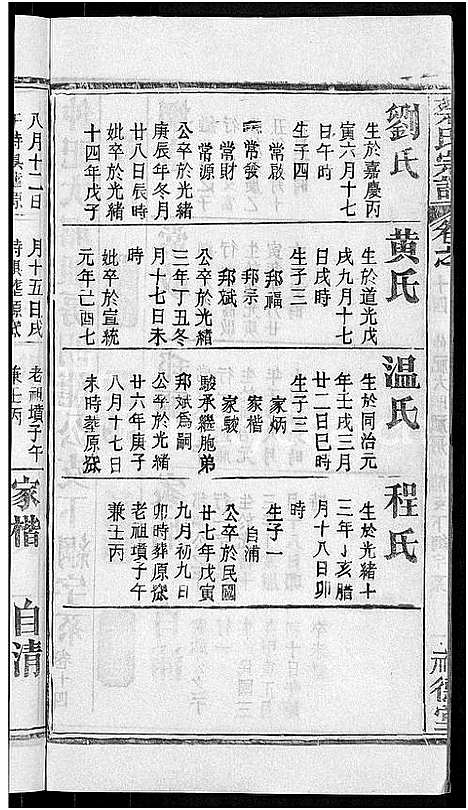 劉氏
生於嘉慶丙
寅六月十七
日午時
生子四
常啟
常發
常財
常源
公卒於光緒
庚辰年冬月
廿八日辰時
妣卒於光緒
十四年戊子
黃氏
生於道光戊
戌九月十七
日戌時
生子三
邦福
邦宗
邦斌
公卒於光緒
三年丁丑冬
月十七日未
時
妣卒於宣統
元年己酉七
温氏
生於同治元
年壬戌三月
廿二日巳時
生子三
家炳
家楷
家駿
駿承繼胞弟
邦斌爲嗣
公卒於光緒
廿六年庚子
八月十七日
未時葬原
程氏
生於光緒十
三年丁亥腊
月十八日卯
時
生子一
自浦
公卒於民國
廿七年戊寅
九月初九日
卯時葬原
老祖墳子午
兼壬丙
八月十二日
月十五日戌
老祖墳子午
兼壬丙
家楷
自清
氏宗譜
卷之